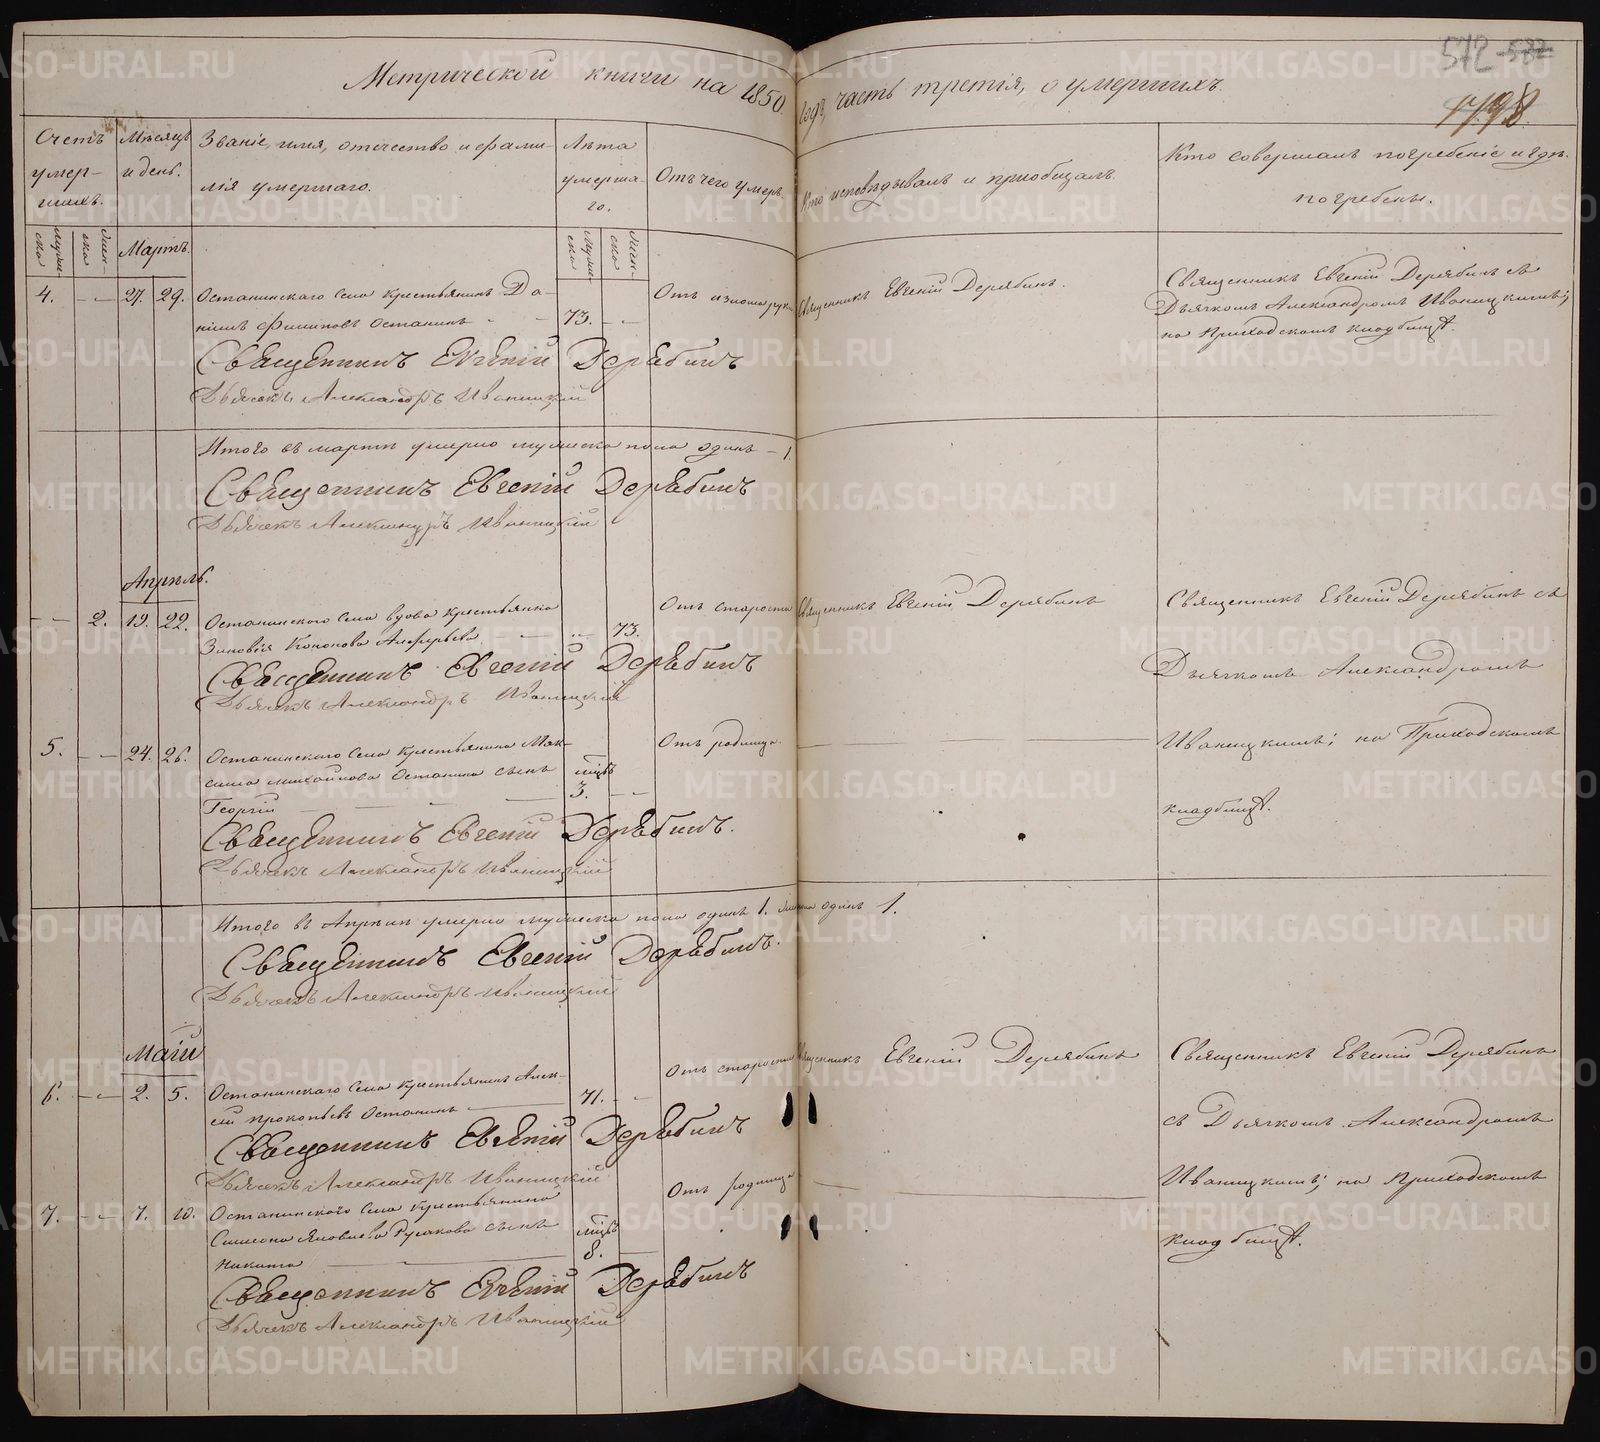 Метрической книги на 1850 годъ, часть третія, о умершихъ.
572 532
1798.
Счетъ умер-шихъ.
Мѣсяцъ и день.
Званіе, имя, отечество и фами-
лія умершаго.
Лѣта умерша-го.
Отъ чего умеръ.
Кто исповѣдывалъ и пріобщалъ.
Кто совершалъ погребеніе и гдѣ
погребены.
муже-ска
жен-ска
Мартъ.
муже-ска
жен-ска
4. — 27. 29. Останинскаго села крестьянинъ Да-
ніилъ Филиповъ Останинъ — 73. —
Священникъ Евгеній Дерябинъ.
Священникъ Евгеній Дерябинъ съ
Дьячкомъ Александромъ Иваницкимъ;
на Приходскомъ кладбищѣ.
Священникъ Евгеній Дерябинъ
Дьячекъ Александръ Иваницкій
Итого въ мартѣ умерло мужеска пола одинъ — 1.
Священникъ Евгеній Дерябинъ
Дьячекъ Александръ Иваницкій
Апрѣль.
— 2. 19. 22. Останинскаго села вдова крестьянка
Зиновія Кононова — 73.
Отъ старости
Священникъ Евгеній Дерябинъ
Священникъ Евгеній Дерябинъ съ
Священникъ Евгеній Дерябинъ
Дьячекъ Александръ Иваницкій
Дьячкомъ Александромъ
5. — 24. 26. Останинскаго села крестьянина Мак-
сима Михайлова Останина сынъ
Георгій — мѣсъ 3. —
Отъ родимца.
Иваницкимъ; на Приходскомъ
кладбищѣ.
Священникъ Евгеній Дерябинъ.
Дьячекъ Александръ Иваницкій
Итого въ Апрѣлѣ умерло мужеска пола одинъ 1. женска одинъ 1.
Священникъ Евгеній Дерябинъ.
Дьячекъ Александръ Иваницкій
Маій
6. — 2. 5. Останинскаго села крестьянинъ Алек-
сій Прокопьевъ Останинъ — 71. —
Отъ старости
Священникъ Евгеній Дерябинъ
Священникъ Евгеній Дерябинъ
Священникъ Евгеній Дерябинъ
Дьячекъ Александръ Иваницкій
съ Дьячкомъ Александромъ
7. — 7. 10. Останинскаго села крестьянина
Симеона Яковлева Русакова сынъ
Никита — мѣсъ 8. —
Отъ родимца
Иваницкимъ; на Приходскомъ
кладбищѣ.
Священникъ Евгеній Дерябинъ
Дьячекъ Александръ Иваницкій
METRIKI.GASO-URAL.RU